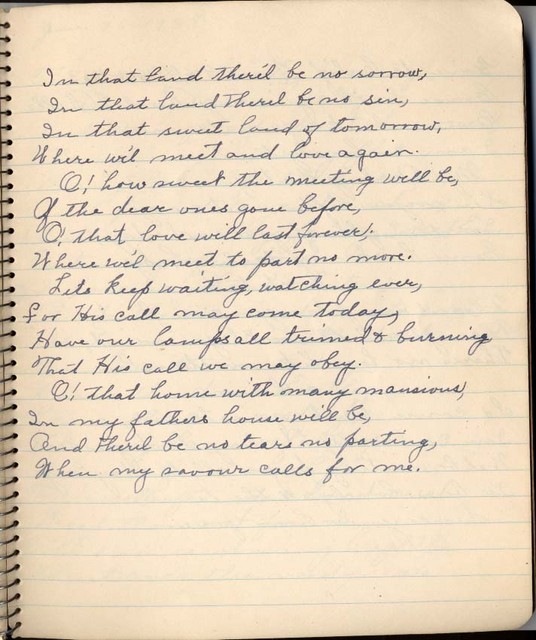 In that land there'l be no sorrow,
In that land therel be no sin,
In that sweet land of tomorrow,
Where we'l meet and love again.
O! how sweet the meeting will be,
Of the dear ones gone before,
O! that love will last forever,
Where we'l meet to part no more.
Lets keep waiting, watching ever,
For His call may come today,
Have our lamps all trimed & burning
That His call we may obey.
O! that home with many mansions,
In my fathers house will be,
And therel be no tears no parting,
When my savour calls for me.